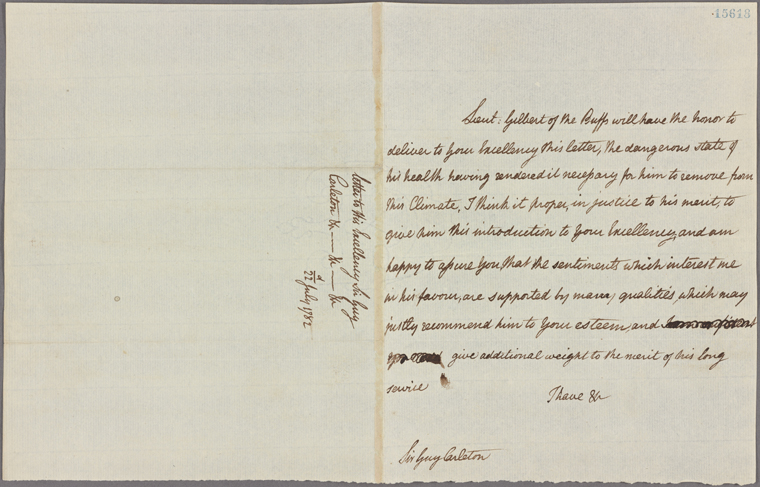 15613
Letter to His Excellency Sir Guy
Carleton &c — &c — &c
22d July 1782
Lieut: Gilbert of the Buffs will have the honor to
deliver to Your Excellency this letter, the dangerous state of
his health having rendered it necessary for him to remove from
this Climate, I think it proper, in justice to his merit, to
give him this introduction to Your Excellency, and am
happy to assure You, that the sentiments which interest me
in his favour, are supported by many qualities, which may
justly recommend him to Your esteem, and
give additional weight to the merit of his long
service
I have &c
Sir Guy Carleton